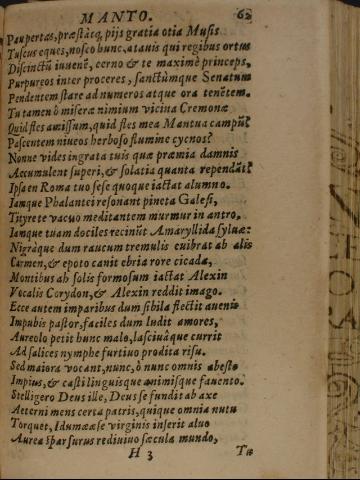 MANTO. 62
Paupertas, præstàcq, pijs gratia otia Musis
Tuscus eques, nosco hunc, atauis qui regibus ortus
Discinctū iuuenē, cerno & te maximè princeps,
Purpureos inter proceres, sanctúmque Senatum
Pendentem stare ad numeros atque ora tenētem.
Tu tamen ô miseræ nimium vicina Cremonæ
Quid fles amissum, quid fles mea Mantua campū?
Pascentem niueos herboso flumine cycnos?
Nonne vides ingrata tuis quæ præmia damnis
Accumulent superi, & solatia quanta rependāt?
Ipsa en Roma tuo sese quoque iactat alumno.
Iamque Phalantei resonant pineta Galesi,
Tityre te vacuo meditantem murmur in antro,
Iamque tuam dociles reciniit Amaryllida syluæ:
Nigráque dum raucum tremulis euibrat ab alis
Carmen, & epoto canit ebria rore cicada,
Montibus ah solis formosum iactat Alexin
Vocalis Corydon, & Alexin reddit imago.
Ecce autem imparibus dum sibila flectit auenis
Impubis pastor, faciles dum ludit amores,
Aureolo petit hunc malo, lasciuáque currit
Ad salices nymphe furtiuo prodita risu.
Sed maiora vocant, nunc, ô nunc omnis abesto
Impius, & casti linguisque animisque fauento.
Stelligero Deus ille, Deus se fundit ab axe
Aeterni mens certa patris, quique omnia nutu
Torquet, Idumææ se virginis inserit aluo
Aurea sparsurus rediuiuo sæcula mundo,
H 3 Tu